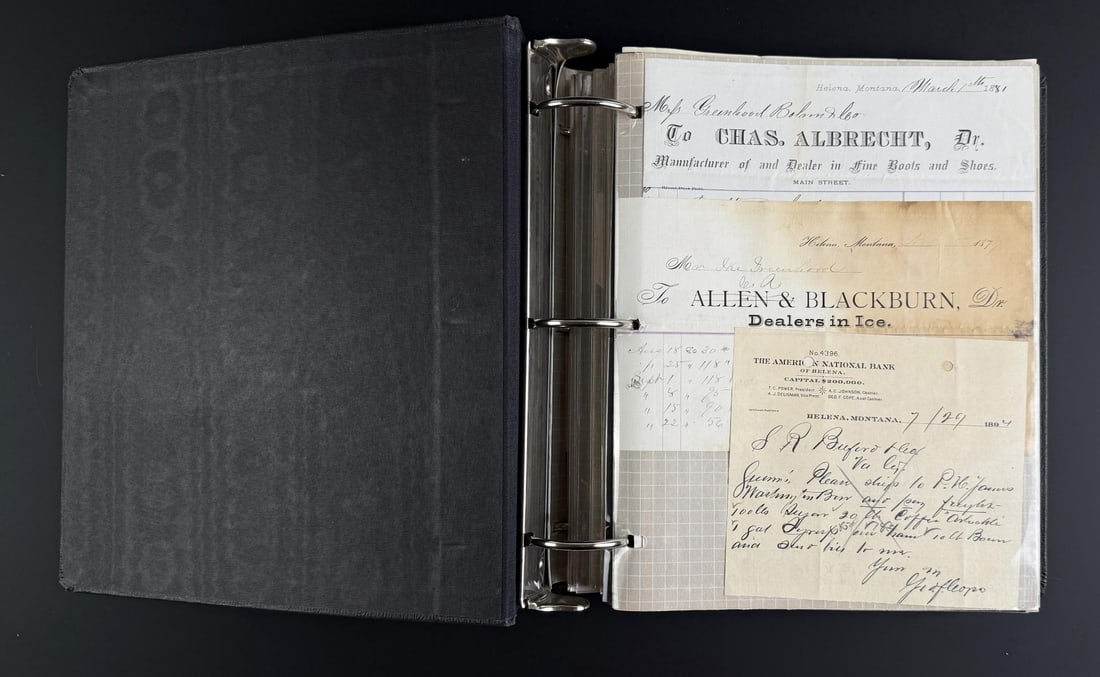 Helena, Montana, March 1th 1881
Mess Greenhood Bohm & Co
To CHAS. ALBRECHT, Dr.
Manufacturer of and Dealer in Fine Boots and Shoes.
MAIN STREET.
Helena, Montana, 187
To ALLEN & BLACKBURN, Dr.
Dealers in Ice.
Aug 18 20 20
" 25 " 118 "
Sept 1 " 118
" 8 " 65
" 15 " 90
" 22 " 56
No. 4396.
THE AMERICAN NATIONAL BANK
OF HELENA.
CAPITAL $200,000.
T. C. POWER, President. A. C. JOHNSON, Cashier.
A. J. SELIGMAN, Vice Prest. GEO. F. COPE, Asst Cashier.
HELENA, MONTANA, 7/29 1894
S R Buford & Co
Va City
Please ship to P. H. James
Washington Bar and pay freight
100 lbs Sugar 20 lb Coffee Arbuckle
1 gal Syrup one ham 10 lb Bacon
and send bill to me.
Yours
Geo F Cope